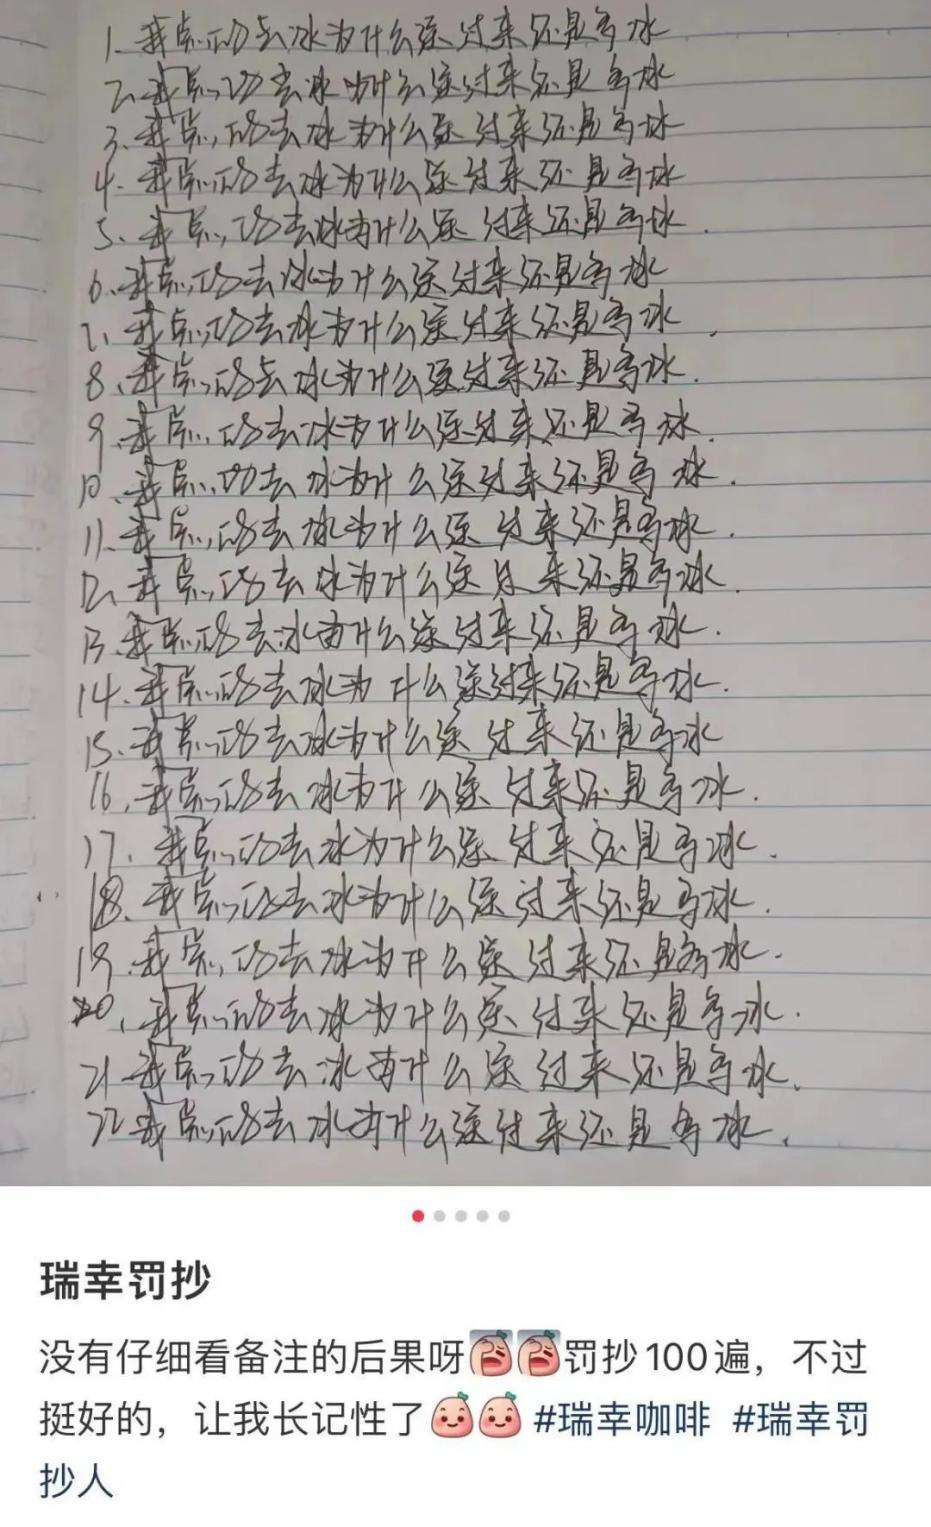 1、我点的去冰为什么送过来还是多冰
2、我点的去冰为什么送过来还是多冰
3、我点的去冰为什么送过来还是多冰
4、我点的去冰为什么送过来还是多冰
5、我点的去冰为什么送过来还是多冰.
6、我点的去冰为什么送过来还是多冰
7、我点的去冰为什么送过来还是多冰.
8、我点的去冰为什么送过来还是多冰.
9、我点的去冰为什么送过来还是多冰.
10、我点的去冰为什么送过来还是多冰.
11、我点的去冰为什么送过来还是多冰.
12、我点的去冰为什么送过来还是多冰.
13、我点的去冰为什么送过来还是多冰.
14、我点的去冰为什么送过来还是多冰.
15、我点的去冰为什么送过来还是多冰
16、我点的去冰为什么送过来还是多冰.
17、我点的去冰为什么送过来还是多冰.
18、我点的去冰为什么送过来还是多冰.
19、我点的去冰为什么送过来还是多冰.
20、我点的去冰为什么送过来还是多冰.
21、我点的去冰为什么送过来还是多冰.
22、我点的去冰为什么送过来还是多冰.
瑞幸罚抄
没有仔细看备注的后果呀罚抄100遍，不过
挺好的，让我长记性了 #瑞幸咖啡 #瑞幸罚
抄人